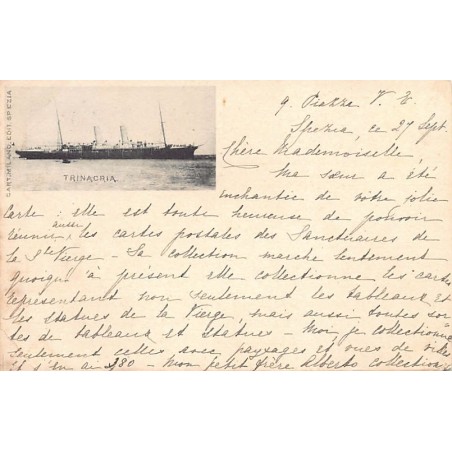 CART. MILANO, EDIT. SPEZIA
TRINACRIA.
9. Piazza V. E.
Spezia, ce 27 Sept.
Chère Mademoiselle,
Ma sœur a été
enchantée de votre jolie
carte : elle est toute heureuse de pouvoir
réunir aussi les cartes postales des Sanctuaires de
la Ste Vierge - Sa collection marche lentement
quoique à présent elle collectionne les cartes
représentant non seulement les tableaux et
les statues de la Vierge, mais aussi toutes sor
tes de tableaux et statues - Moi, je collectionne
seulement celles avec paysages et vues de villes
et j'en ai 380 - Mon petit frère Alberto collectionne